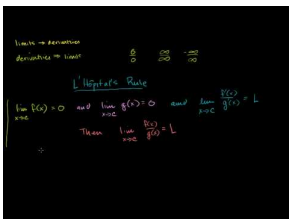 limits → derivatives
derivatives → limits 0/0 ∞/∞ -∞/∞
L'Hopital's Rule
lim x→c f(x) = 0 and lim x→c g(x) = 0 and lim x→c f'(x)/g'(x) = L
Then lim x→c f(x)/g(x) = L